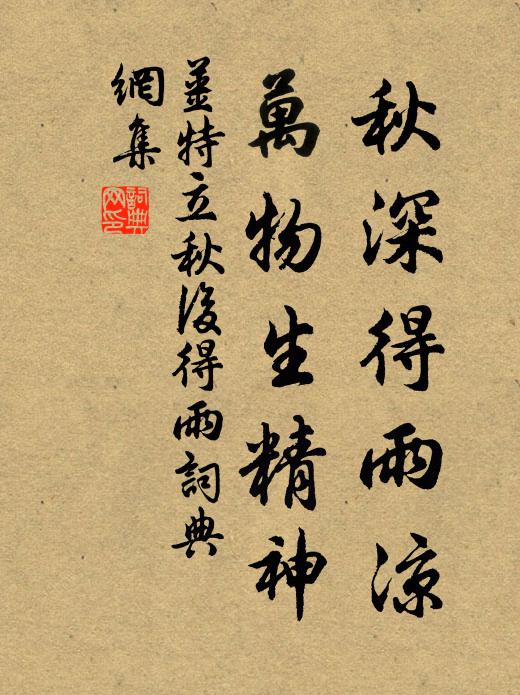 秋深得雨凉
萬物生精神
薑特立秋後得雨詞典
網集
詞典
网印